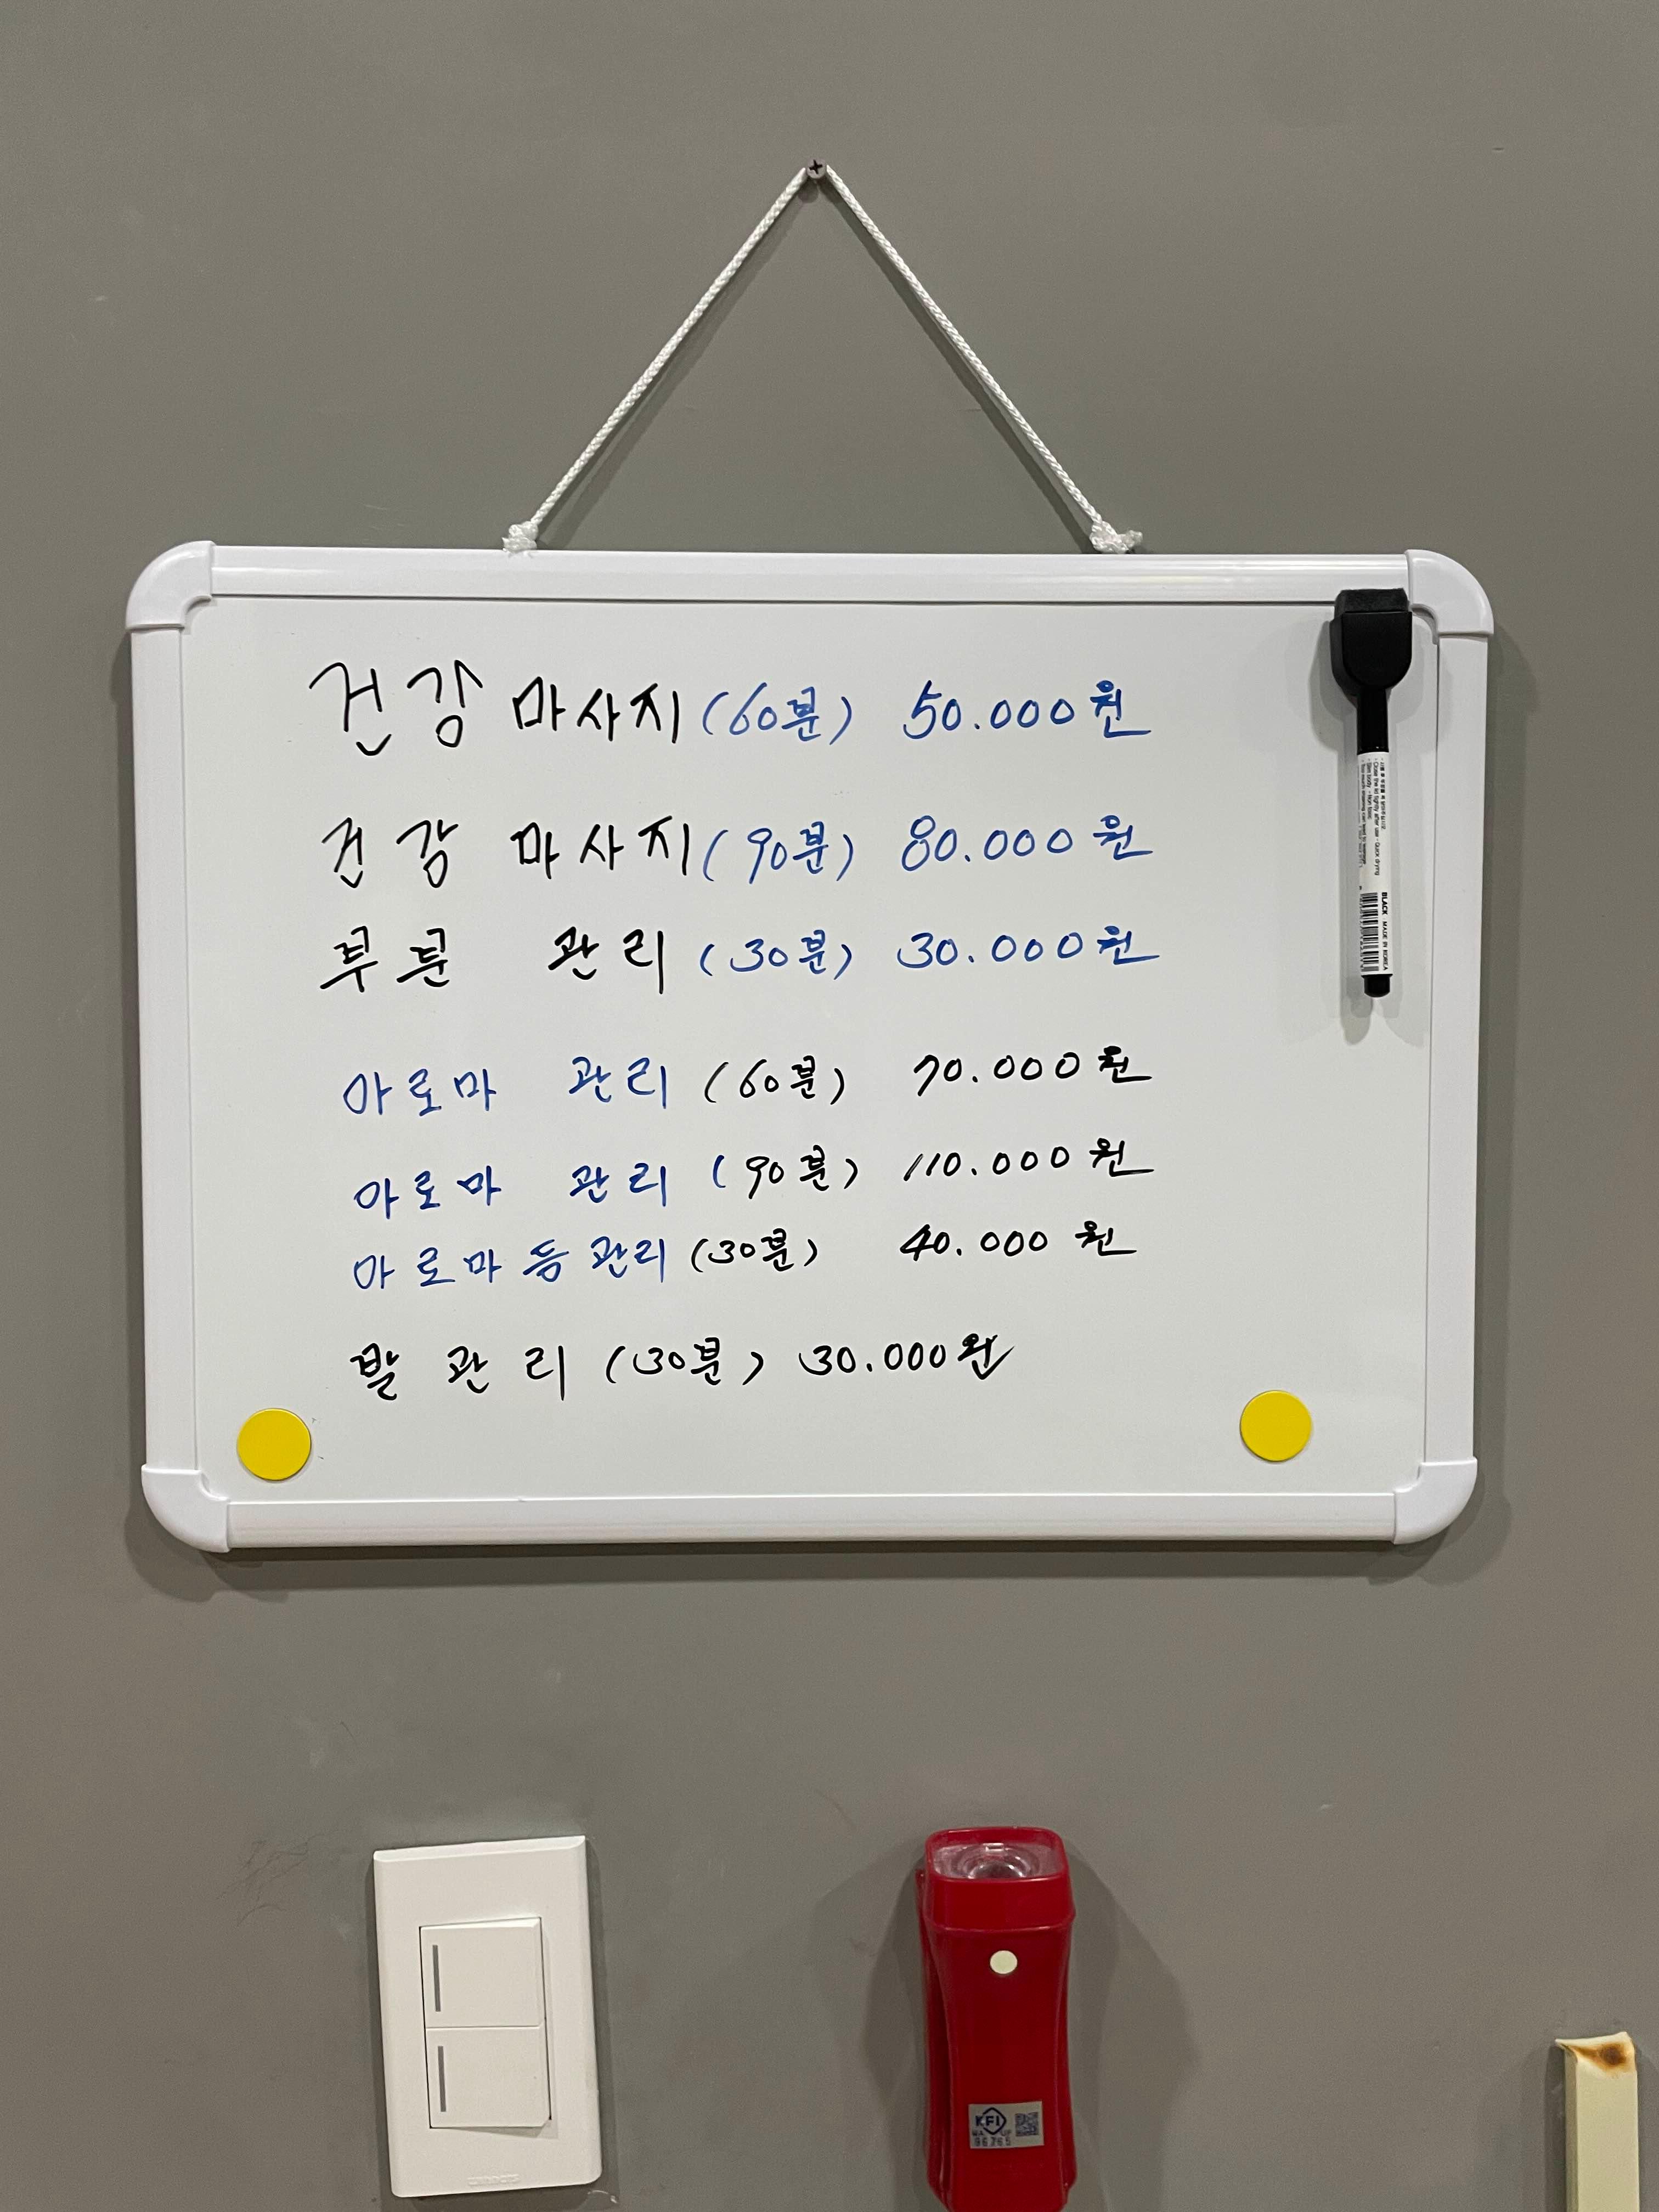 건강 마사지 (60분) 50.000원
건강 마사지 (90분) 80.000원
부분 관리 (30분) 30.000원
아로마 관리 (60분) 70.000원
아로마 관리 (90분) 110.000원
아로마 등관리 (30분) 40.000원
발 관리 (30분) 30.000원
Close the lid tightly after use Quick drying
BLACK MADE IN KOREA
KFI